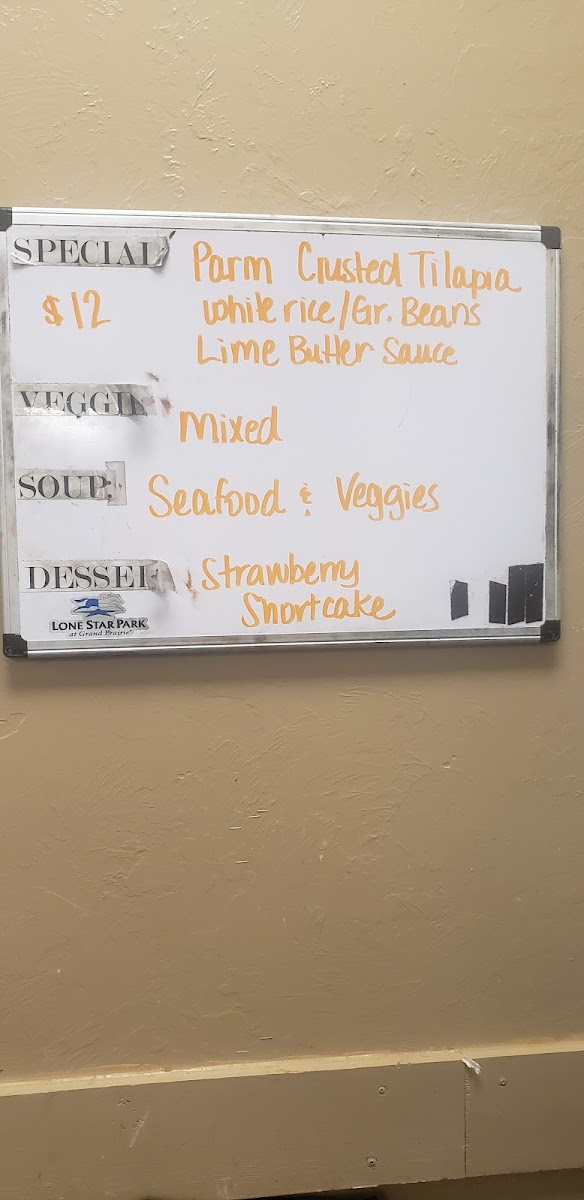 SPECIAL Parm Crusted Tilapia
$12 white rice/Gr. Beans
Lime Butter Sauce
VEGGIE Mixed
SOUP: Seafood & Veggies
DESSER Strawberry
Shortcake
LONE STAR PARK
at Grand Prairie